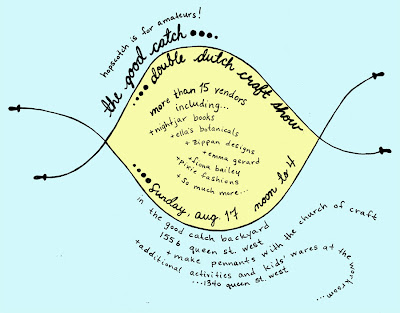 hopscotch is for amateurs!
the good catch ....
....double dutch craft show
more than 15 venders
including...
+nightjar books
+ella's botanicals
+zippan designs
+emma gerard
+fiona bailey
+pixie fashions
+so much more...
....sunday, aug. 17 noon to 4
in the good catch backyard
1556 queen st. west
+make pennants with the church of craft
+additional activities and kids' wares at the workroom...
...1340 queen st. west